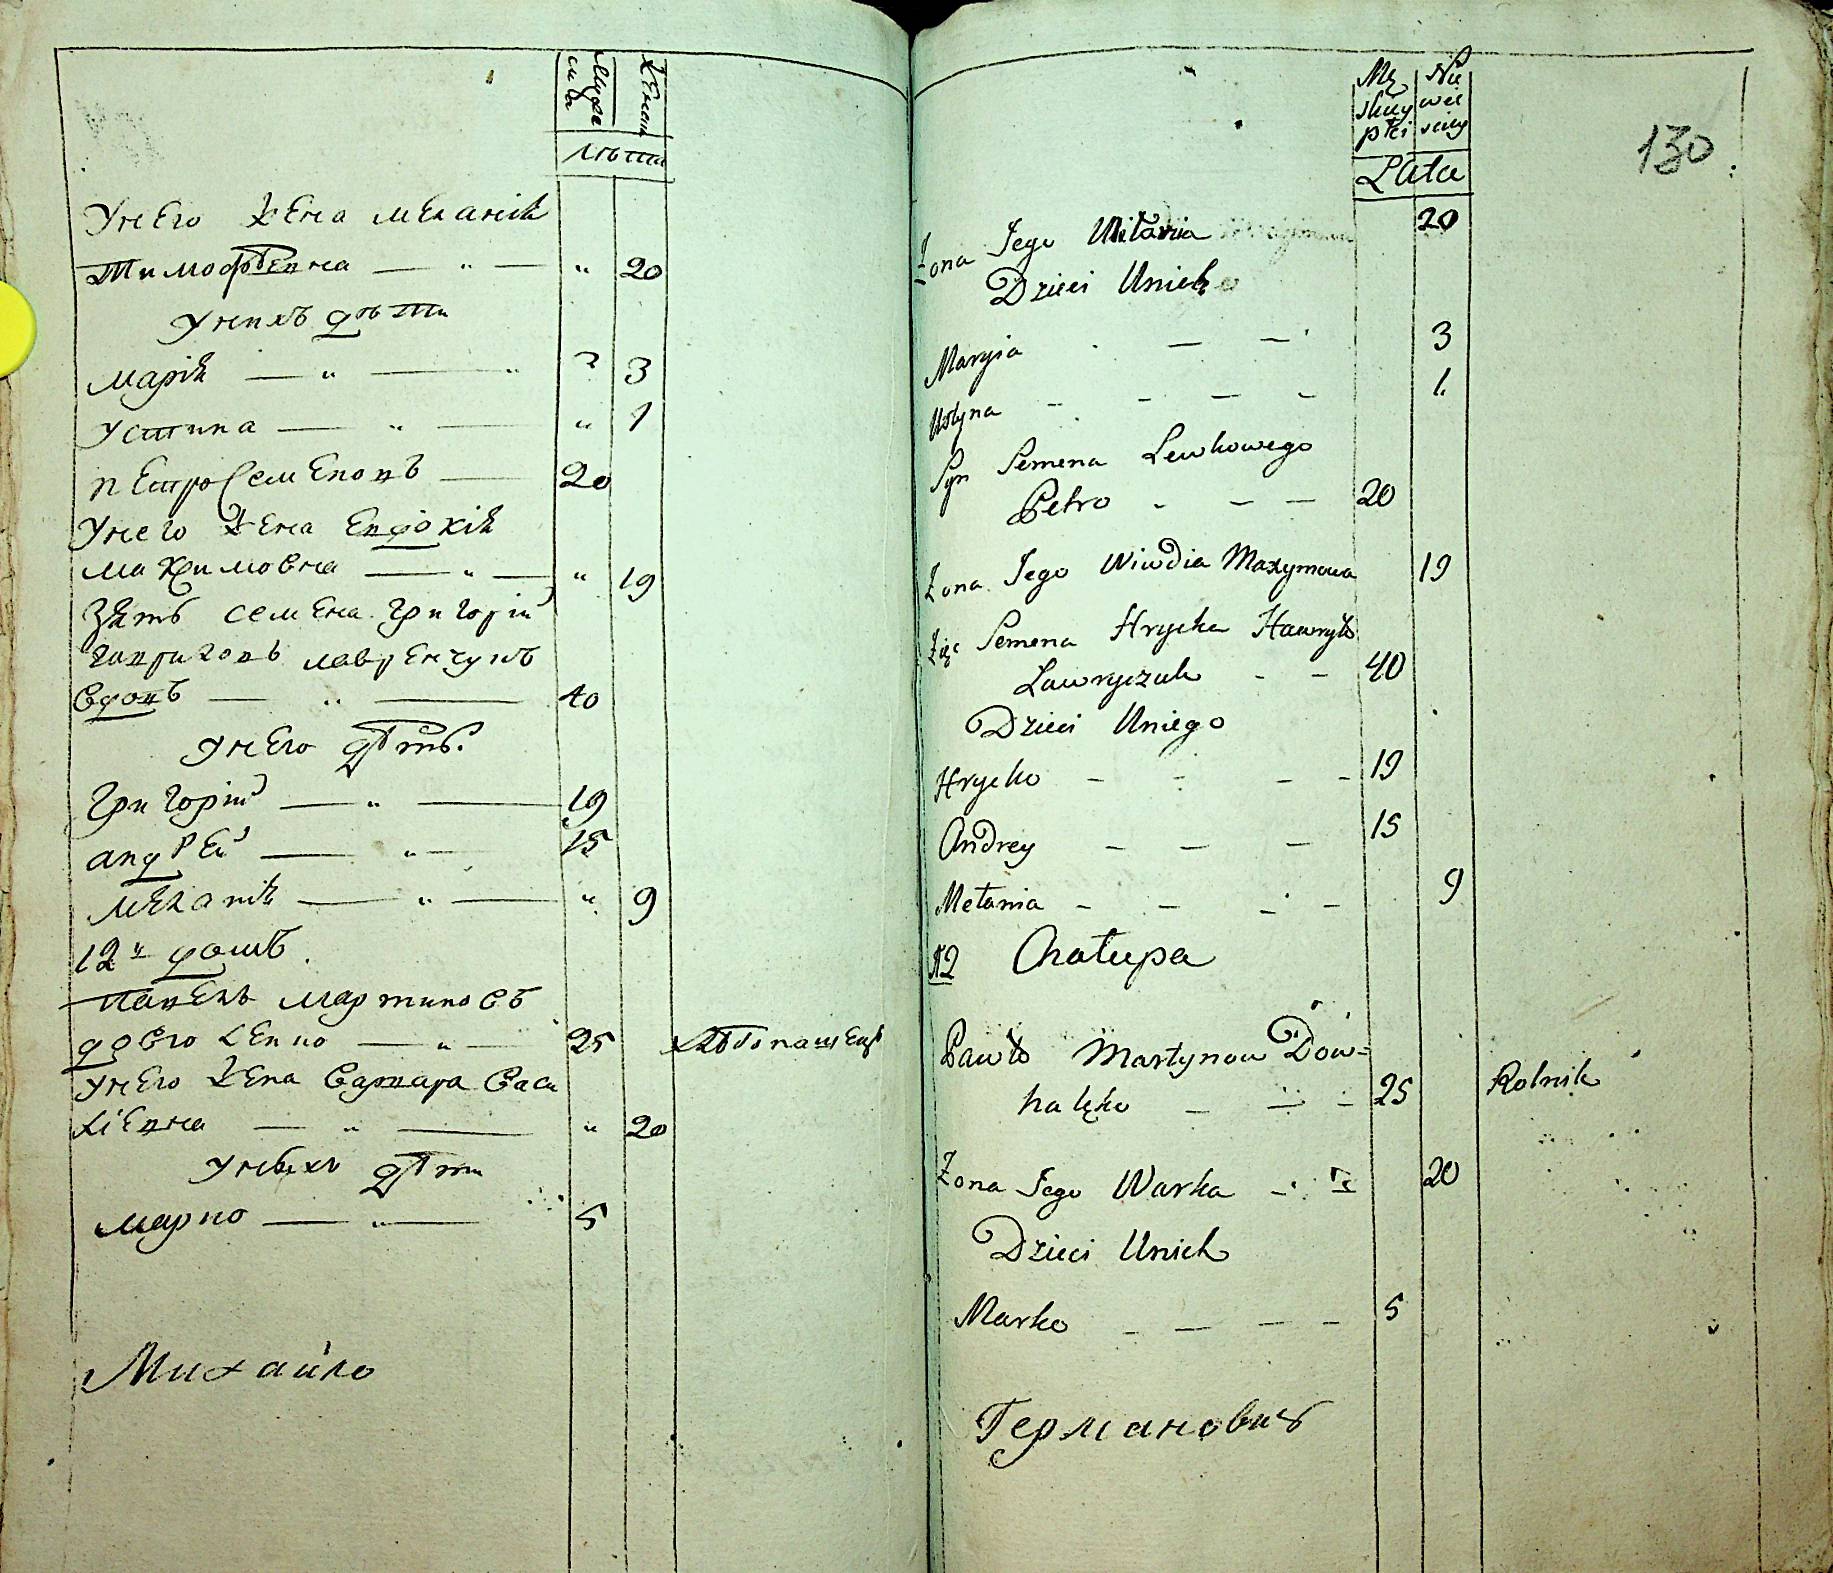 Мужеска
Женска
лѣта
У него жена меланія
Тимофѣевна — „ — „ 20
У нихъ дѣти
марія — „ — „ 3
устина — „ — „ 1
петро Семеновъ — 20
У него жена Евдокія
максимовна — „ — „ 19
Зять семена григорій
гавриловъ лавренчукъ
вдовъ — „ — 40
у него дѣти.
григорій — „ — 19
андрей — „ — 15
меланія — „ — „ 9
12й домъ.
павелъ мартиновъ
довгаленко — „ — 25 хлѣбопашецъ
у него жена варвара васи
ліевна — „ — „ 20
у нихъ дѣти
марко — „ — 5
Михайло
Męskiey płci
Niewiesciey
Lata
130
Żona Jego Miłania 20
Dzieci Unich
Maryia — — 3
Ustyna — — — 1
Syn Semena Lewkowego
Petro — — — 20
Żona Jego Wiwdia Maxymowa 19
Zięć Semena Hrycko Hawryło
Lawryczuk — — 40
Dzieci Uniego
Hrycko — — — — 19
Andrey — — — 15
Mełania — — — — 9
12 Chałupa
Pawło Martynow Dow=
halęko — — — 25 Rolnik
Żona Jego Warka — — 20
Dzieci Unich
Marko — — — — 5
Германовичъ